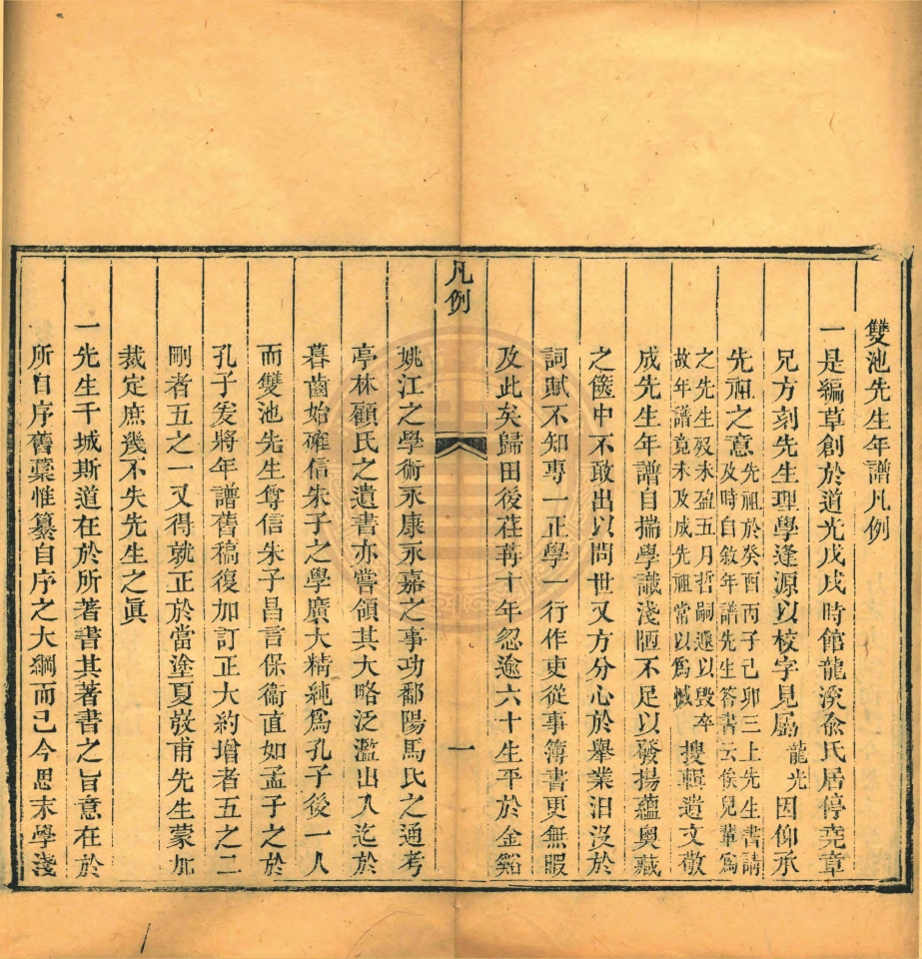 雙池先生年譜凡例
一是編草創於道光戊戌時館龍溪俞氏居停堯章
兄方刻先生理學逢源以校字見屬龍光因仰承
先祖之意先祖於癸酉丙子己卯三上先生書請及時自敘年譜先生答書云俟兒輩爲
之先生歿未盈五月哲嗣遽以毀卒故年譜竟未及成先祖常以爲憾搜輯遺文敬
成先生年譜自揣學識淺陋不足以發揚蘊奥藏
之篋中不敢出以問世又方分心於舉業汨沒於
詞賦不知專一正學一行作吏從事簿書更無暇
及此矣歸田後荏苒十年忽逾六十生平於金谿
凡例
一
姚江之學術永康永嘉之事功鄱陽馬氏之通考
亭林顧氏之遺書亦嘗領其大略泛濫出入迄於
暮齒始確信朱子之學廣大精純爲孔子後一人
而雙池先生尊信朱子昌言保衞直如孟子之於
孔子爰將年譜舊稿復加訂正大約增者五之二
刪者五之一又得就正於當塗夏弢甫先生蒙加
裁定庶幾不失先生之眞
一先生干城斯道在於所著書其著書之旨意在於
所自序舊稾惟纂自序之大綱而已今思末學淺